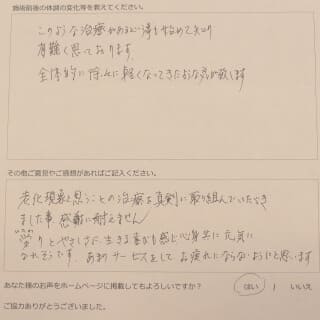 施術前後の体調の変化等を教えてください。
このような治療があると言う事を始めて知り
有難く思っております。
全体的に除々に軽くなってきたような気が致します
その他ご意見やご感想があればご記入ください。
老化現象と思うことの治療を真剣に取り組んでいただき
ました事、感謝に耐えません
りとやさしさに、生きる喜びを感じ心身共に元気に
なれそうです。あまりサービスをしてお疲れにならないようにと思います
あなた様のお声をホームページに掲載してもよろしいですか？ （ はい ） いいえ
ご協力ありがとうございました。